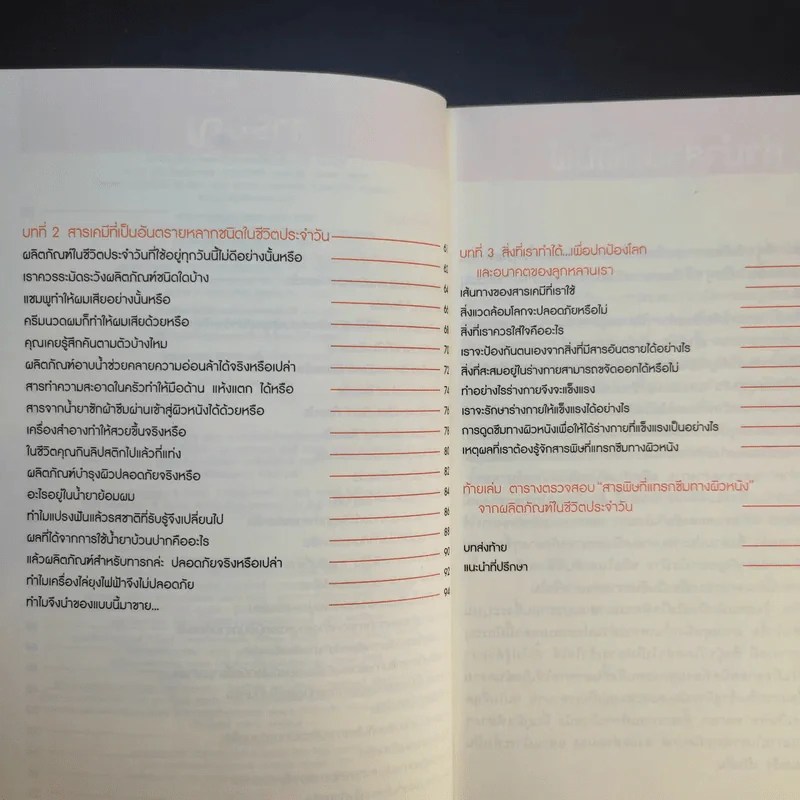 บทที่ 2 สารเคมีที่เป็นอันตรายหลากชนิดในชีวิตประจำวัน 61
ผลิตภัณฑ์ในชีวิตประจำวันที่ใช้อยู่ทุกวันนี้ไม่ดีอย่างนั้นหรือ 62
เราควรระมัดระวังผลิตภัณฑ์ชนิดใดบ้าง 64
แชมพูทำให้ผมเสียอย่างนั้นหรือ 66
ครีมนวดผมก็ทำให้ผมเสียด้วยหรือ 68
คุณเคยรู้สึกคันตามตัวบ้างไหม 70
ผลิตภัณฑ์อาบน้ำช่วยคลายความอ่อนล้าได้จริงหรือเปล่า 72
สารทำความสะอาดในครัวทำให้มือด้าน แห้งแตก ได้หรือ 74
สารจากน้ำยาซักผ้าซึมผ่านเข้าสู่ผิวหนังได้ด้วยหรือ 76
เครื่องสำอางทำให้สวยขึ้นจริงหรือ 78
ในชีวิตคุณกินลิปสติกไปแล้วกี่แท่ง 80
ผลิตภัณฑ์บำรุงผิวปลอดภัยจริงหรือ 82
อะไรอยู่ในน้ำยาย้อมผม 84
ทำไมแปรงฟันแล้วรสชาติที่รับรู้จึงเปลี่ยนไป 86
ผลที่ได้จากการใช้น้ำยาบ้วนปากคืออะไร 88
แล้วผลิตภัณฑ์สำหรับทารกล่ะ ปลอดภัยจริงหรือเปล่า 90
ทำไมเครื่องไล่ยุงไฟฟ้าจึงไม่ปลอดภัย 92
ทำไมจึงนำของแบบนี้มาขาย... 94
บทที่ 3 สิ่งที่เราทำได้...เพื่อปกป้องโลก
และอนาคตของลูกหลานเรา
เส้นทางของสารเคมีที่เราใช้
สิ่งแวดล้อมโลกจะปลอดภัยหรือไม่
สิ่งที่เราควรใส่ใจคืออะไร
เราจะป้องกันตนเองจากสิ่งที่มีสารอันตรายได้อย่างไร
สิ่งที่สะสมอยู่ในร่างกายสามารถขจัดออกได้หรือไม่
ทำอย่างไรร่างกายจึงจะแข็งแรง
เราจะรักษาร่างกายให้แข็งแรงได้อย่างไร
การดูดซึมทางผิวหนังเพื่อให้ได้ร่างกายที่แข็งแรงเป็นอย่างไร
เหตุผลที่เราต้องรู้จักสารพิษที่แทรกซึมทางผิวหนัง
ท้ายเล่ม ตารางตรวจสอบ "สารพิษที่แทรกซึมทางผิวหนัง"
จากผลิตภัณฑ์ในชีวิตประจำวัน
บทส่งท้าย
แนะนำที่ปรึกษา